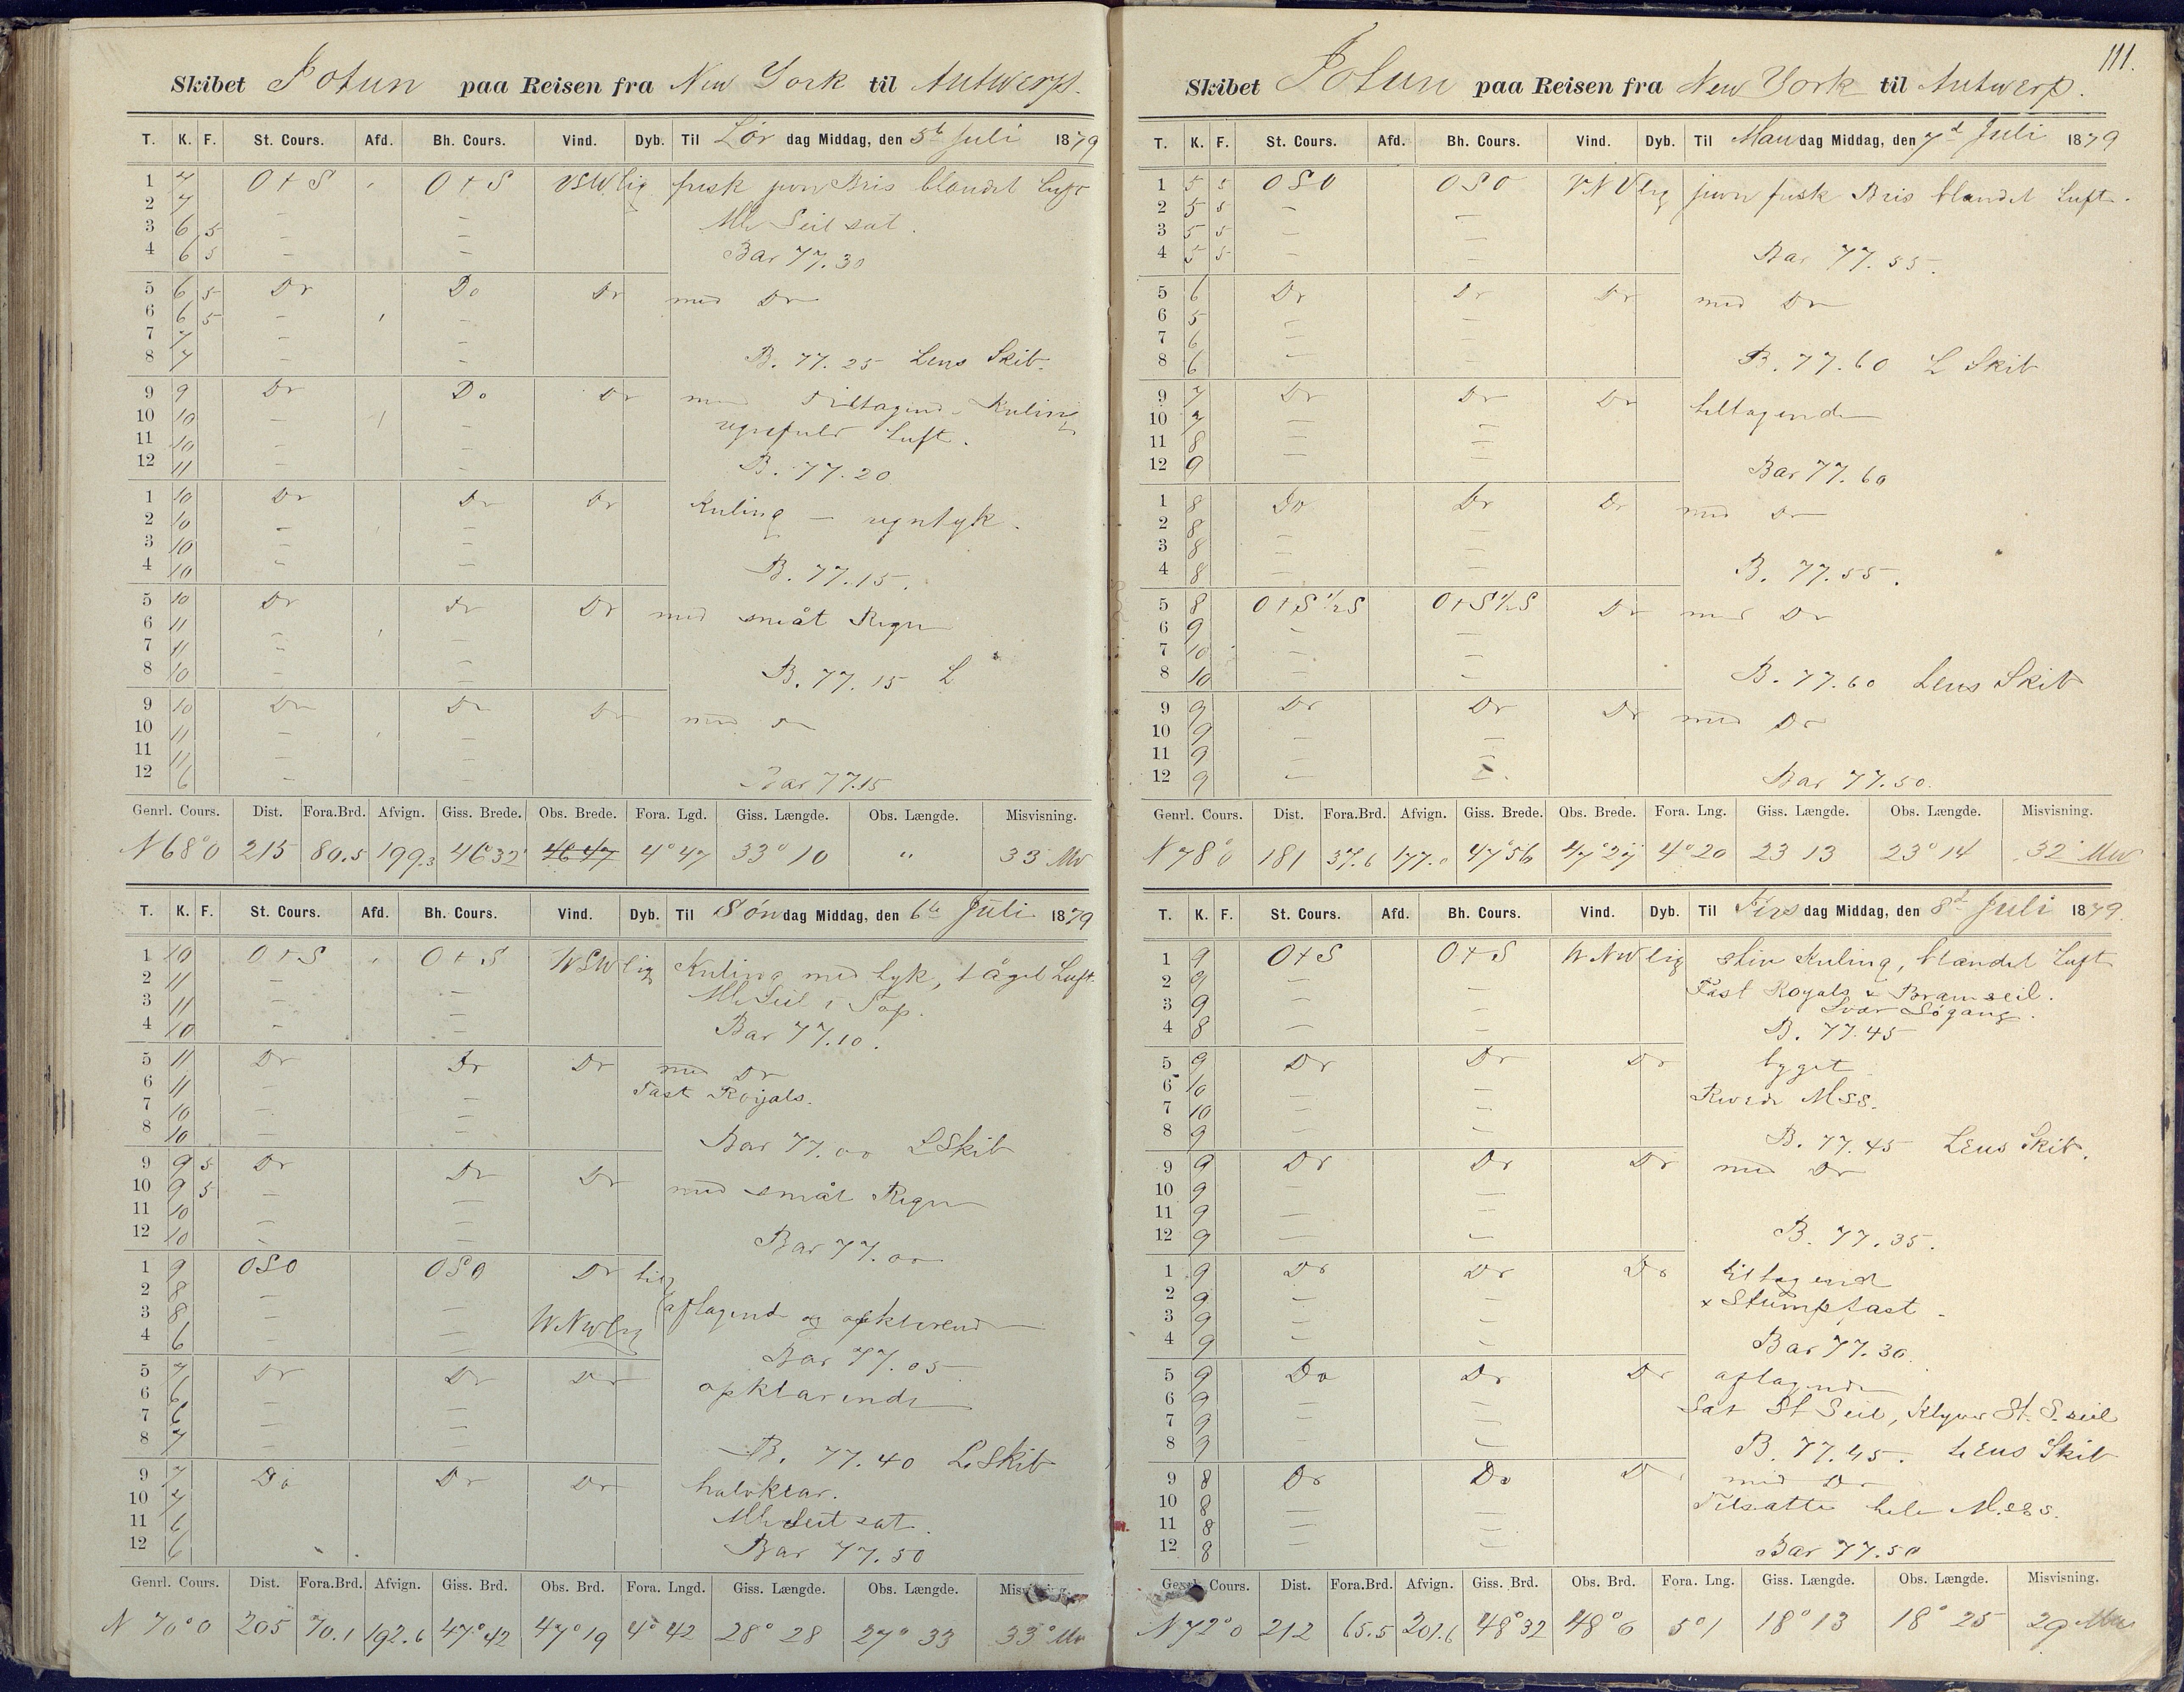 Skibet Jotun paa Reisen fra New York til Antwerp.
T. K. F. St. Cours. Afd. Bh. Cours. Vind. Dyb. Til Lør dag Middag, den 5te Juli 1879
1 7 O t S O t S VSWlig frisk jevn Bris blandet Luft
2 7 — — Alle Seil sat.
3 6 5 — —
4 6 5 — — Bar 77.30
5 6 5 Do Do Do med Do
6 6 5 — —
7 7 — —
8 7 — — B. 77.25 Lens Skib.
9 9 Do Do Do med tiltagende Kuling
10 10 — — regnfuld Luft.
11 10 — —
12 11 — — B. 77.20
1 10 Do Do Do Kuling — regntyk.
2 10 — —
3 10 — —
4 10 — — B. 77.15.
5 10 Do Do Do med småt Regn
6 11 — —
7 11 — —
8 10 — — B. 77.15 L
9 10 Do Do Do med Do
10 11 — —
11 11 — —
12 6 — — Bar 77.15
Genrl. Cours. Dist. Fora.Brd. Afvign. Giss. Brede. Obs. Brede. Fora. Lgd. Giss. Længde. Obs. Længde. Misvisning.
N 68° O 215 80.5 199.3 46°32' 46 47 4° 47 33° 10 " 33° Mv
T. K. F. St. Cours. Afd. Bh. Cours. Vind. Dyb. Til Søn dag Middag, den 6te Juli 1879
1 10 O t S O t S WSWlig Kuling med tyk, tåget Luft.
2 11 — — Alle Seil i Top.
3 11 — —
4 10 — — Bar 77.10.
5 11 Do Do Do med Do
6 11 — — Fast Royals.
7 10 — —
8 10 — — Bar 77.00 L Skib
9 9 5 Do Do Do med småt Regn
10 9 5 — —
11 10 — —
12 10 — — Bar 77.00
1 9 OSO OSO Do til
2 8 — — aftagende og opklarende
3 8 — — WNWlig
4 6 — — Bar 77.05
5 7 Do Do Do opklarende
6 6 — —
7 6 — —
8 7 — — B. 77.40 L. Skib
9 7 Do Do Do halvklar.
10 7
11 6 Alle Seil sat.
12 6 Bar 77.50
Genrl. Cours. Dist. Fora.Brd. Afvign. Giss. Brd. Obs. Brd. Fora. Lngd. Giss. Længde. Obs. Længde. Misvisning.
N 70° O 205 70.1 192.6 47° 42 47° 19 4° 42 28° 28 27° 33 33° Mv
111.
Skibet Jotun paa Reisen fra New York til Antwerp.
T. K. F. St. Cours. Afd. Bh. Cours. Vind. Dyb. Til Man dag Middag, den 7d Juli 1879
1 5 5 OSO OSO VNVlig jevn frisk Bris blandet Luft.
2 5 5 — —
3 5 5 — —
4 5 5 — — Bar 77.55.
5 6 Do Do Do med Do
6 5 — —
7 6 — —
8 6 — — B. 77.60 L Skib
9 7 Do Do Do tiltagende
10 7 — —
11 8 — —
12 9 — — Bar 77.60
1 8 Do Do Do med Do
2 8 — —
3 8 — —
4 8 — — B. 77.55.
5 8 O t S 1/2 S O t S 1/2 S Do med Do
6 9 — —
7 10 — —
8 10 — — B. 77.60 Lens Skib
9 9 Do Do Do med Do
10 9 — —
11 9 — —
12 9 — — Bar 77.50.
Genrl. Cours. Dist. Fora.Brd. Afvign. Giss. Brede. Obs. Brede. Fora. Lng. Giss. Længde. Obs. Længde. Misvisning.
N 78° O 181 37.6 177.0 47°56 47°27 4° 20 23 13 23° 14 32° Mv
T. K. F. St. Cours. Afd. Bh. Cours. Vind. Dyb. Til Tirs dag Middag, den 8d Juli 1879.
1 9 O t S O t S WNWlig stiv Kuling, blandet Luft
2 9 — — Fast Royals & Bramseil.
3 9 — — Svær Søgang.
4 8 — — B. 77.45
5 9 Do Do Do byget
6 10 — — Revede Mss.
7 10 — —
8 9 — — B. 77.45 Lens Skib.
9 9 Do Do Do med Do
10 9 — —
11 9 — —
12 9 — — B. 77.35.
1 9 Do Do Do tiltagende
2 9 — — x Stumpfast
3 9 — —
4 9 — — Bar 77.30
5 9 Do Do Do aftagende
6 9 — — Sat St Seil, Klyver St. S. seil
7 9 — —
8 9 — — B. 77.45. Lens Skib
9 8 Do Do D med Do
10 8 — — Tilsatte hele M.ss.
11 8 — —
12 8 — — Bar 77.50
Genrl. Cours. Dist. Fora.Brd. Afvign. Giss. Brd. Obs. Brd. Fora. Lng. Giss. Længde. Obs. Længde. Misvisning.
N 72° O 212 65.5 201.6 48° 32 48° 6 5° 1 18° 13 18° 25 29 Mv